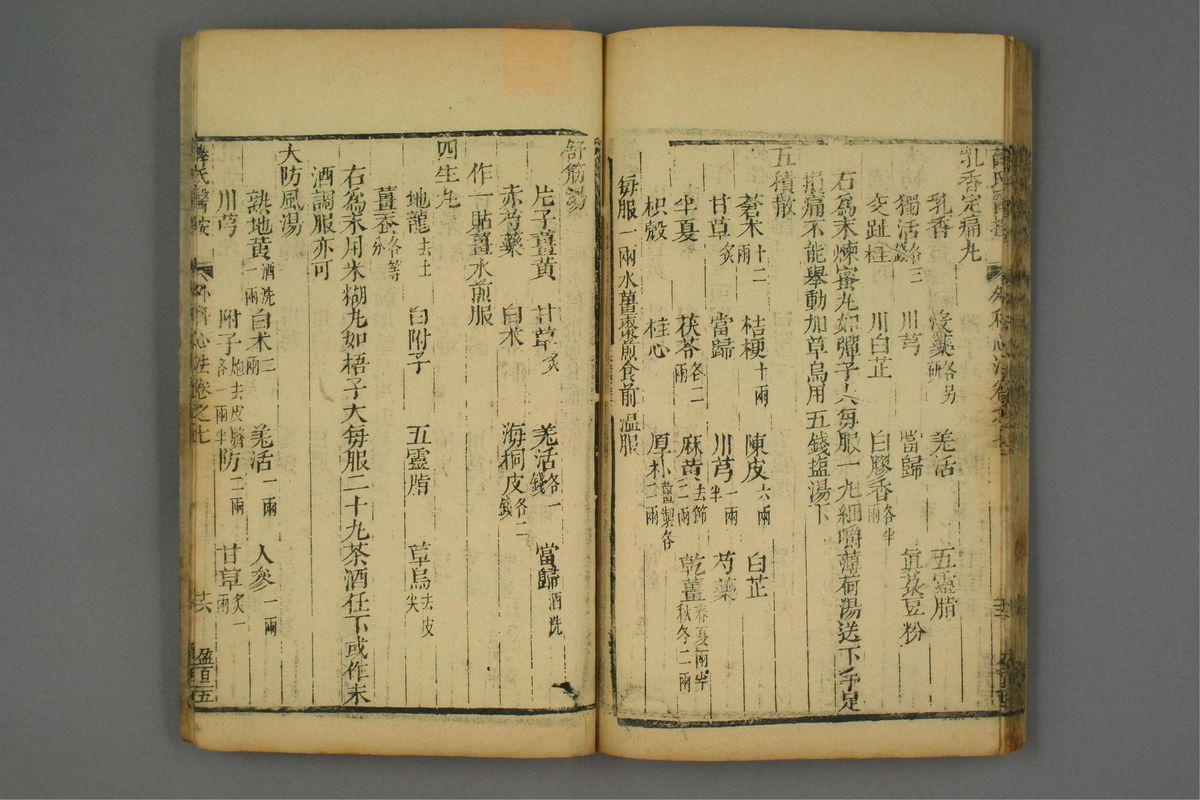 薛氏醫按 外科心法卷之七
乳香定痛丸
乳香 沒藥各另研 羌活 五靈脂
獨活各三錢 川芎 當歸 眞菉豆粉
交趾桂 川白芷 白膠香各半兩
右爲末煉蜜丸如彈子大每服一丸細嚼薄荷湯送下手足
損痛不能舉動加草烏用五錢塩湯下
五積散
蒼朮十二兩 桔梗十兩 陳皮六兩 白芷
甘草炙 當歸 川芎一兩半 芍藥
半夏 茯苓各二兩 麻黃去節二兩 乾薑春夏兩半秋冬二兩
枳殼 桂心 厚朴薑製各二兩
每服一兩水薑棗煎食前溫服
舒筋湯
片子薑黃 甘草炙 羌活各一錢 當歸酒洗
赤芍藥 白朮 海桐皮各二錢
作一貼薑水煎服
四生丸
地龍去土 白附子 五靈脂 草烏去皮尖
薑蚕各等分
右爲末用米糊丸如梧子大每服二十丸茶酒任下或作末
酒調服亦可
大防風湯
熟地黃酒洗一兩 白朮二兩 羌活一兩 人參一兩
川芎 附子炮去皮臍各一兩半 防二兩 甘草炙一兩
薛氏醫按 外科心法卷之七 十六 盈百五